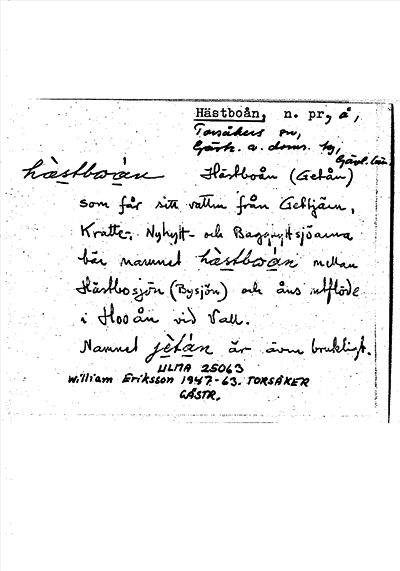 Hästboån, n. pr, å,
Torsåkers sn,
Gästr. ö. doms. hg,
Gävl. län.
hàstbωán Hästboån (Getån)
som får sitt vatten från Gettjärn,
Kratte-, Nyhytt- och Baggnyttsjöarna
bär namnet hàstbωán mellan
Hästbosjön (Bysjön) och åns utflöde
i Hooån vid Vall.
Namnet jètán är även brukligt.
ULMA 25063
William Eriksson 1947-63. TORSÅKER
GÄSTR.